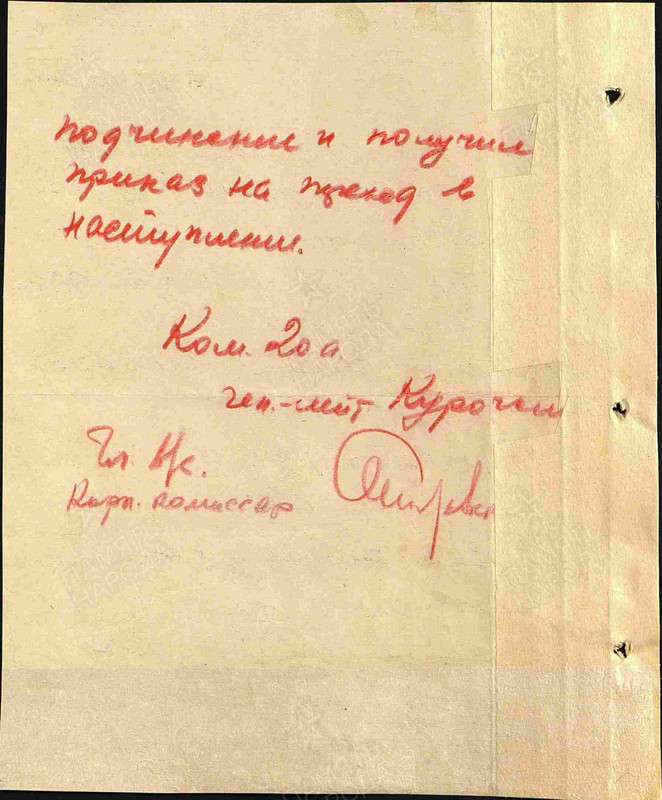 подчинение и получил
приказ на переход в
наступление.
Ком. 20 а.
ген.-лейт Курочкин
Чл. ВС.
Корп. комиссар
ПАМЯТЬ
НАРОДА